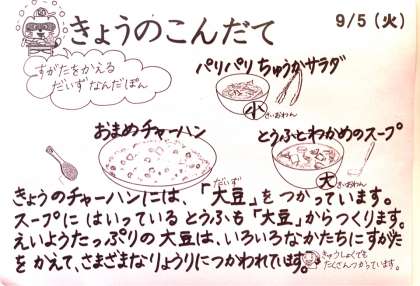 きょうのこんだて
9/5(火)
すがたをかえる
だいずなんだぽん
パリパリちゅうかサラダ
小
きいおわん
おまめチャーハン
とうふとわかめのスープ
大
きいおわん
きょうのチャーハンには、「大豆」をつかっています。
だいず
スープにはいっているとうふも「大豆」からつくります。
えいようたっぷりの大豆は、いろいろなかたちにすがた
をかえて、さまざまなりょうりにつかわれています。
きゅうしょくでも
たくさんつかっています。